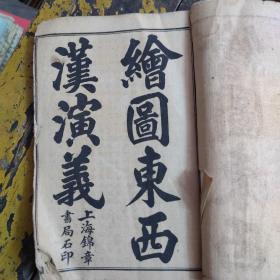 繪圖東西
漢演義
上海錦章
書局石印